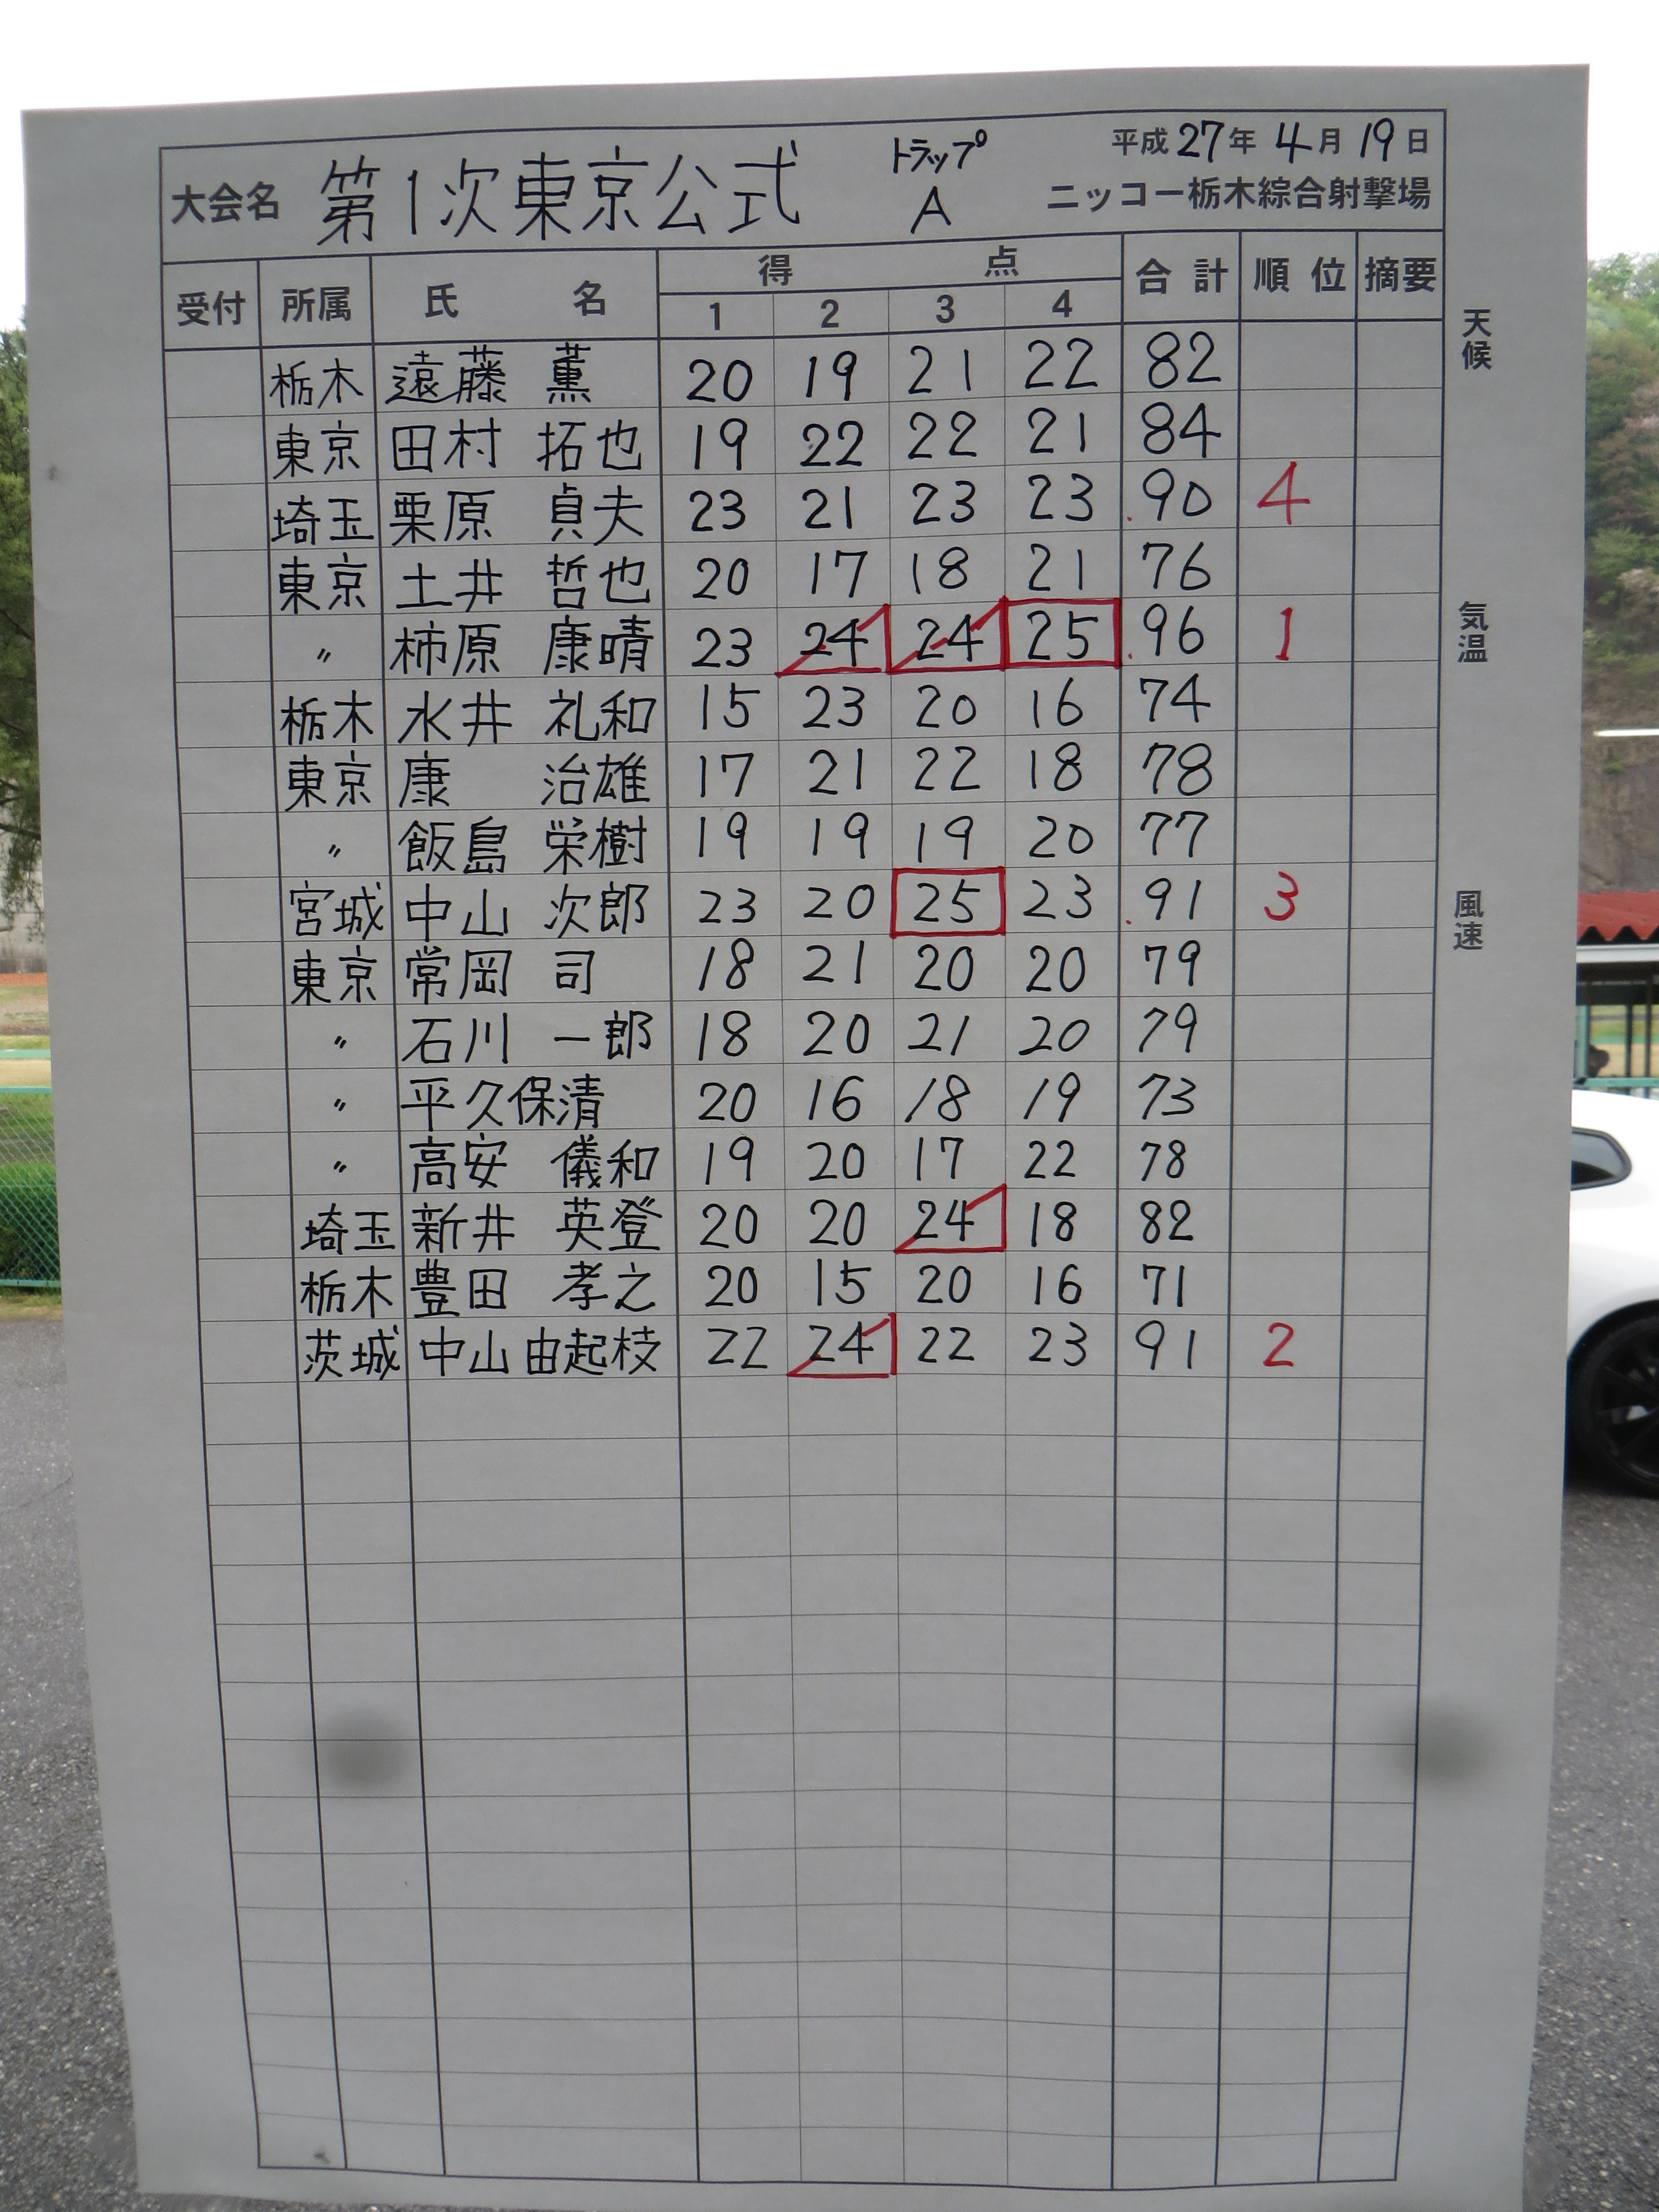 平成27年 4月 19日
大会名 第1次東京公式 トラップ A ニッコー栃木綜合射撃場
受付 所属 氏名 得点 合計 順位 摘要
1 2 3 4
栃木 遠藤 薫 20 19 21 22 82
東京 田村 拓也 19 22 22 21 84
埼玉 栗原 貞夫 23 21 23 23 90 4
東京 土井 哲也 20 17 18 21 76
〃 柿原 康晴 23 24 24 25 96 1
栃木 水井 礼和 15 23 20 16 74
東京 康 治雄 17 21 22 18 78
〃 飯島 栄樹 19 19 19 20 77
宮城 中山 次郎 23 20 25 23 91 3
東京 常岡 司 18 21 20 20 79
〃 石川 一郎 18 20 21 20 79
〃 平久保清 20 16 18 19 73
〃 高安 儀和 19 20 17 22 78
埼玉 新井 英登 20 20 24 18 82
栃木 豊田 孝之 20 15 20 16 71
茨城 中山由起枝 22 24 22 23 91 2
天候
気温
風速